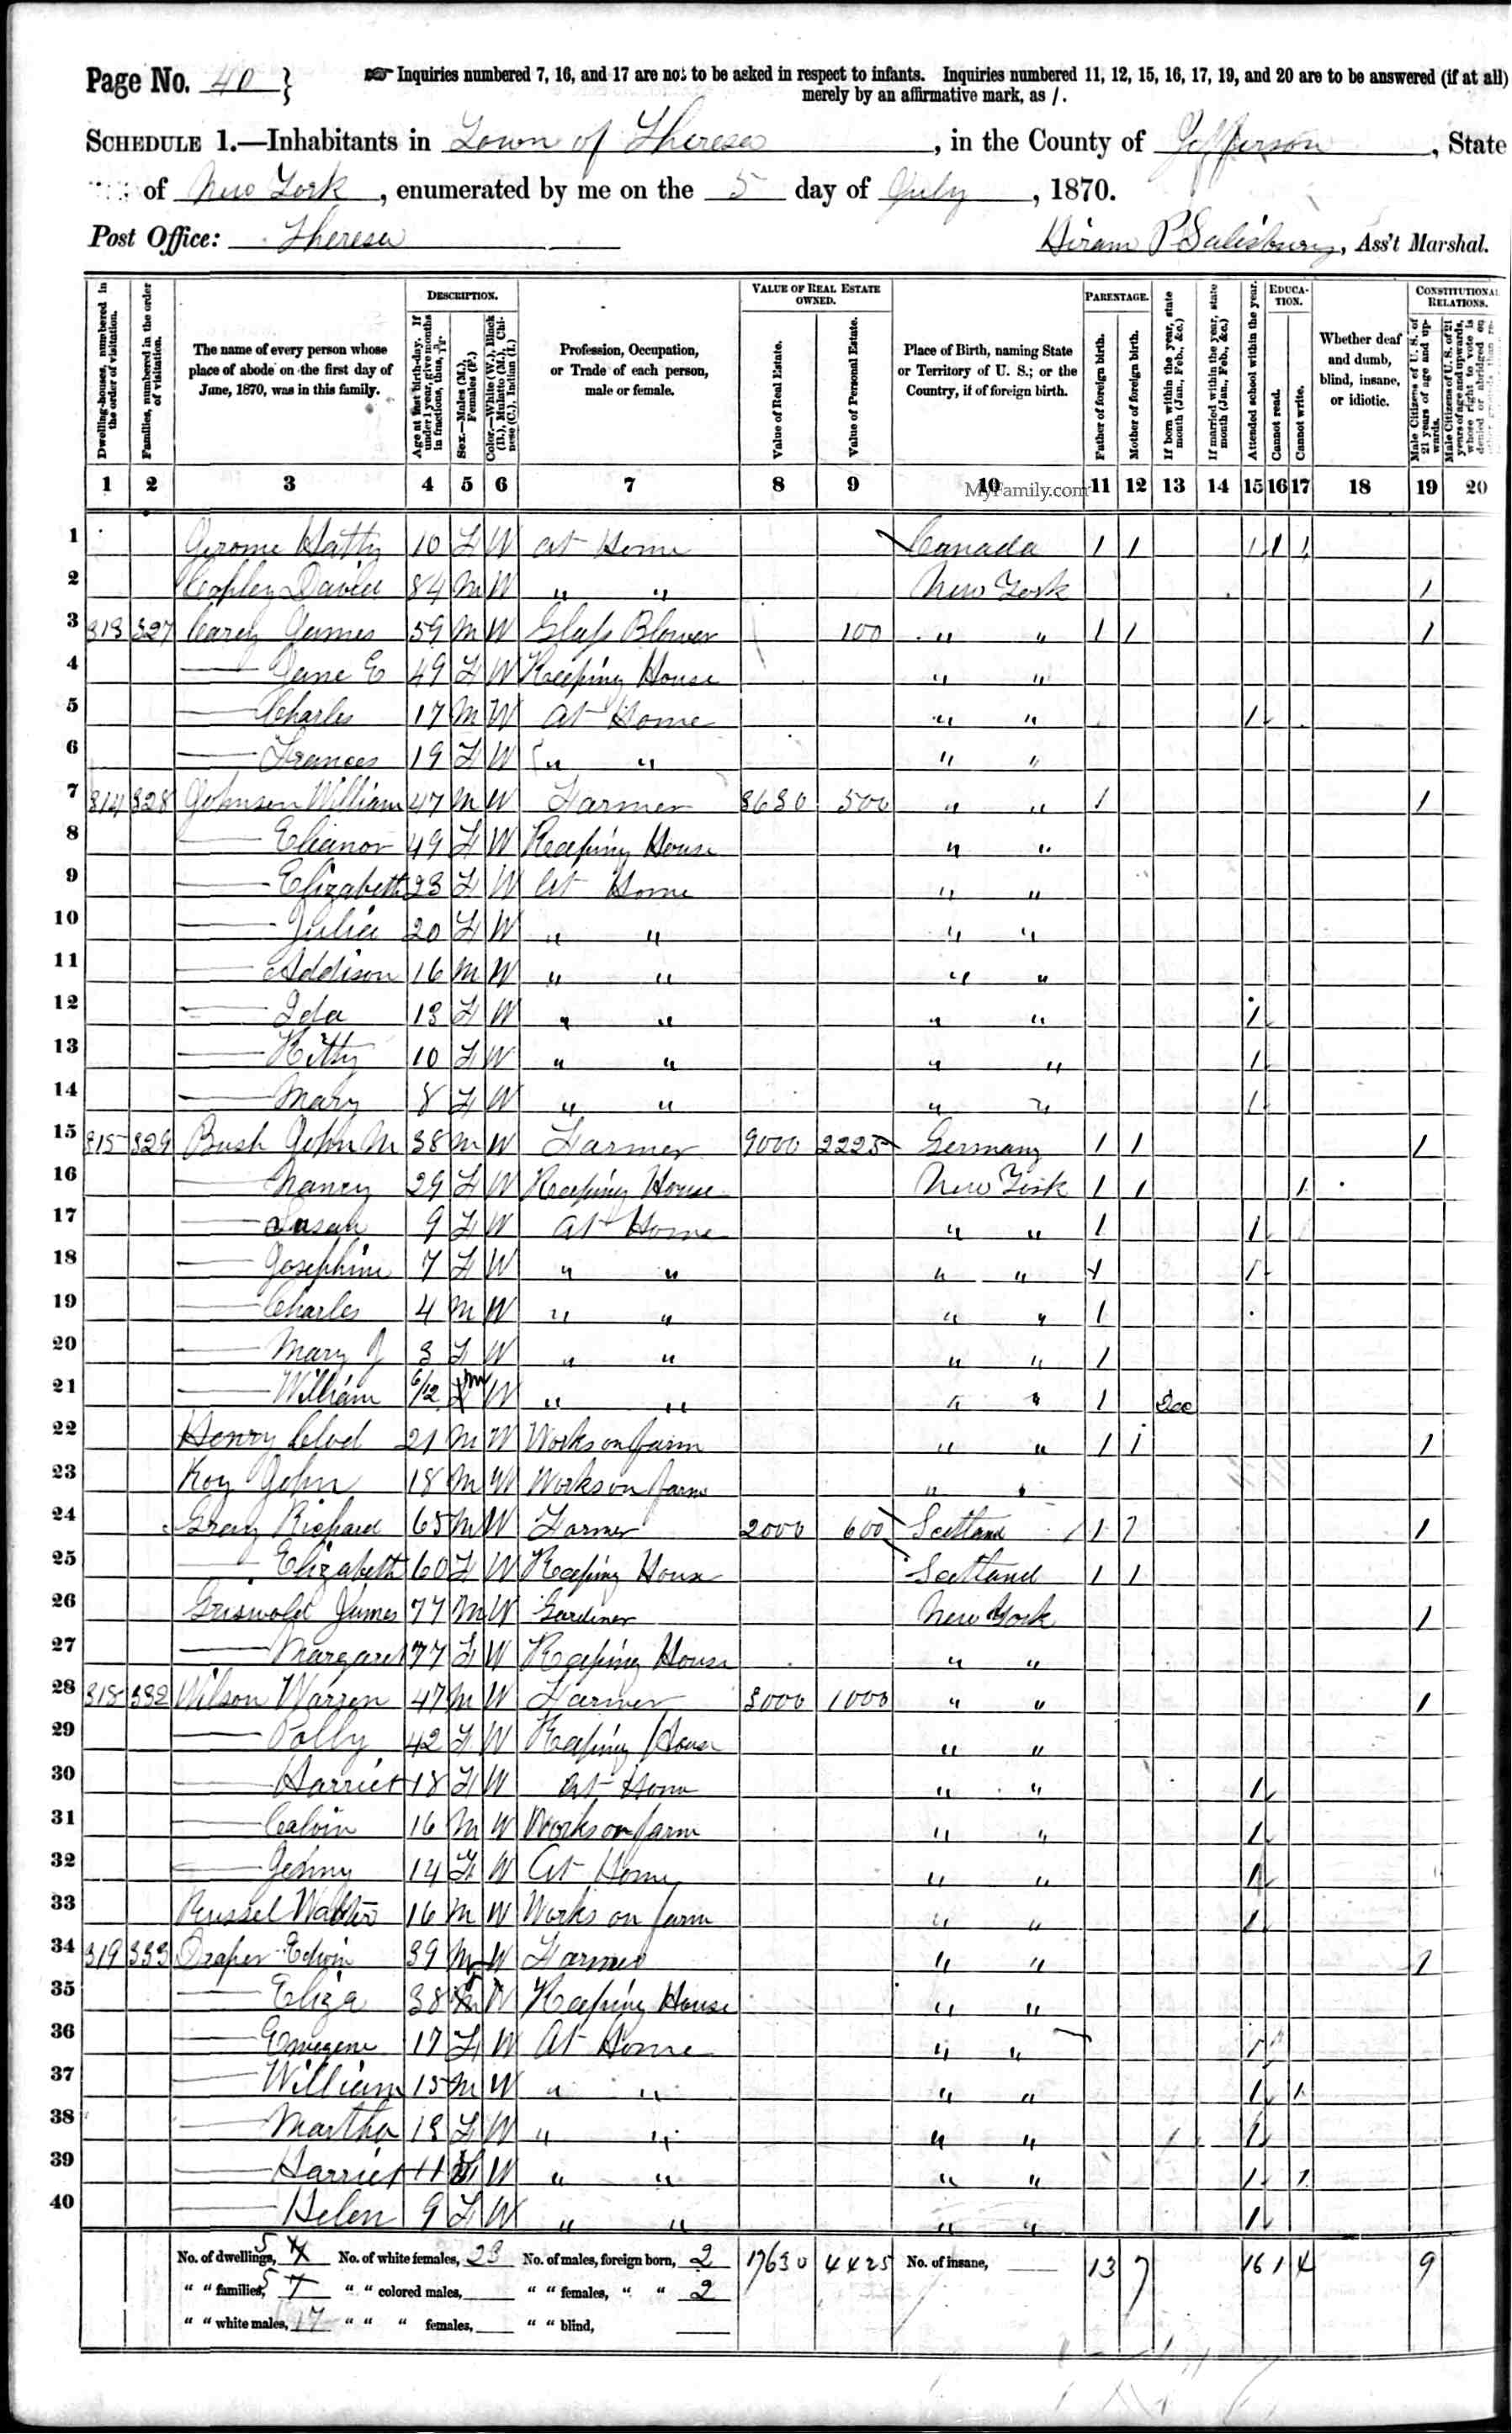 Page No. 40 } ☞ Inquiries numbered 7, 16, and 17 are not to be asked in respect to infants. Inquiries numbered 11, 12, 15, 16, 17, 19, and 20 are to be answered (if at all)
merely by an affirmative mark, as /.
SCHEDULE 1.—Inhabitants in Town of Theresa, in the County of Jefferson, State
of New York, enumerated by me on the 5 day of July, 1870.
Post Office: Theresa Hiram P Salisbury, Ass't Marshal.
Dwelling-houses, numbered in the order of visitation.
Families, numbered in the order of visitation.
The name of every person whose place of abode on the first day of June, 1870, was in this family.
DESCRIPTION.
Age at last birth-day. If under 1 year, give months in fractions, thus,
Sex.—Males (M.), Females (F.)
Color.—White (W.), Black (B.), Mulatto (M.), Chinese (C.), Indian (I.)
Profession, Occupation, or Trade of each person, male or female.
VALUE OF REAL ESTATE OWNED.
Value of Real Estate.
Value of Personal Estate.
Place of Birth, naming State or Territory of U. S.; or the Country, if of foreign birth.
PARENTAGE.
Father of foreign birth.
Mother of foreign birth.
If born within the year, state month (Jan., Feb., &c.)
If married within the year, state month (Jan., Feb., &c.)
Attended school within the year.
EDUCATION.
Cannot read.
Cannot write.
Whether deaf and dumb, blind, insane, or idiotic.
CONSTITUTIONAL RELATIONS.
Male Citizens of U. S. of 21 years of age and upwards.
Male Citizens of U. S. of 21 years of age and upwards, whose right to vote is denied or abridged on
1 2 3 4 5 6 7 8 9 10 11 12 13 14 15 16 17 18 19 20
MyFamily.com
1 Gerome Hatty 10 F W At Home Canada 1 1 1 1 1
2 Copley David 84 M W " " New York 1
3 313 327 Carey James 59 M W Glass Blower 100 " " 1 1 1
4 — Jane E 49 F W Keeping House " "
5 — Charles 17 M W At Home " " 1
6 — Frances 19 F W " " " "
7 314 328 Johnson William 47 M W Farmer 3630 500 " " 1 1
8 — Eleanor 49 F W Keeping House " "
9 — Elizabeth 23 F W At Home " "
10 — Julia 20 F W " " " "
11 — Addison 16 M W " " " "
12 — Ida 13 F W " " " " 1
13 — Kitty 10 F W " " " " 1
14 — Mary 8 F W " " " " 1
15 315 329 Bush John M 38 M W Farmer 9000 2225 Germany 1 1 1
16 — Nancy 29 F W Keeping House New York 1 1 1
17 — Susan 9 F W At Home " " 1 1
18 — Josephine 7 F W " " " " 1 1
19 — Charles 4 M W " " " " 1
20 — Mary J 3 F W " " " " 1
21 — William 6/12 M W " " " " 1 Dec
22 Henry 21 M W Works on farm " " 1 1 1
23 John 18 M W Works on farm " "
24 Gray Richard 65 M W Farmer 2000 600 Scotland 1 1 1
25 — Elizabeth 60 F W Keeping House Scotland 1 1
26 Griswold James 77 M W Gardiner New York 1
27 — Margaret 77 F W Keeping House " "
28 318 332 Wilson Warren 47 M W Farmer 3000 1000 " " 1
29 — Polly 42 F W Keeping House " "
30 — Harriet 18 F W At Home " " 1
31 — Calvin 16 M W Works on farm " " 1
32 — 14 F W At Home " " 1
33 Russel 16 M W Works on farm " " 1
34 319 333 Draper Edwin 39 M W Farmer " " 1
35 — Eliza 38 F W Keeping House " "
36 — Emegene 17 F W At Home " " 1
37 — William 15 M W " " " " 1 1
38 — Martha 13 F W " " " " 1
39 — Harriet 11 F W " " " " 1 1
40 — Helen 9 F W " " " " 1
No. of dwellings, 5 No. of white females, 23 No. of males, foreign born, 2 17630 4425 No. of insane, 13 7 16 1 4 9
" " families, 5 " " colored males, " " females, " " 2
" " white males, 17 " " " females, " " blind,